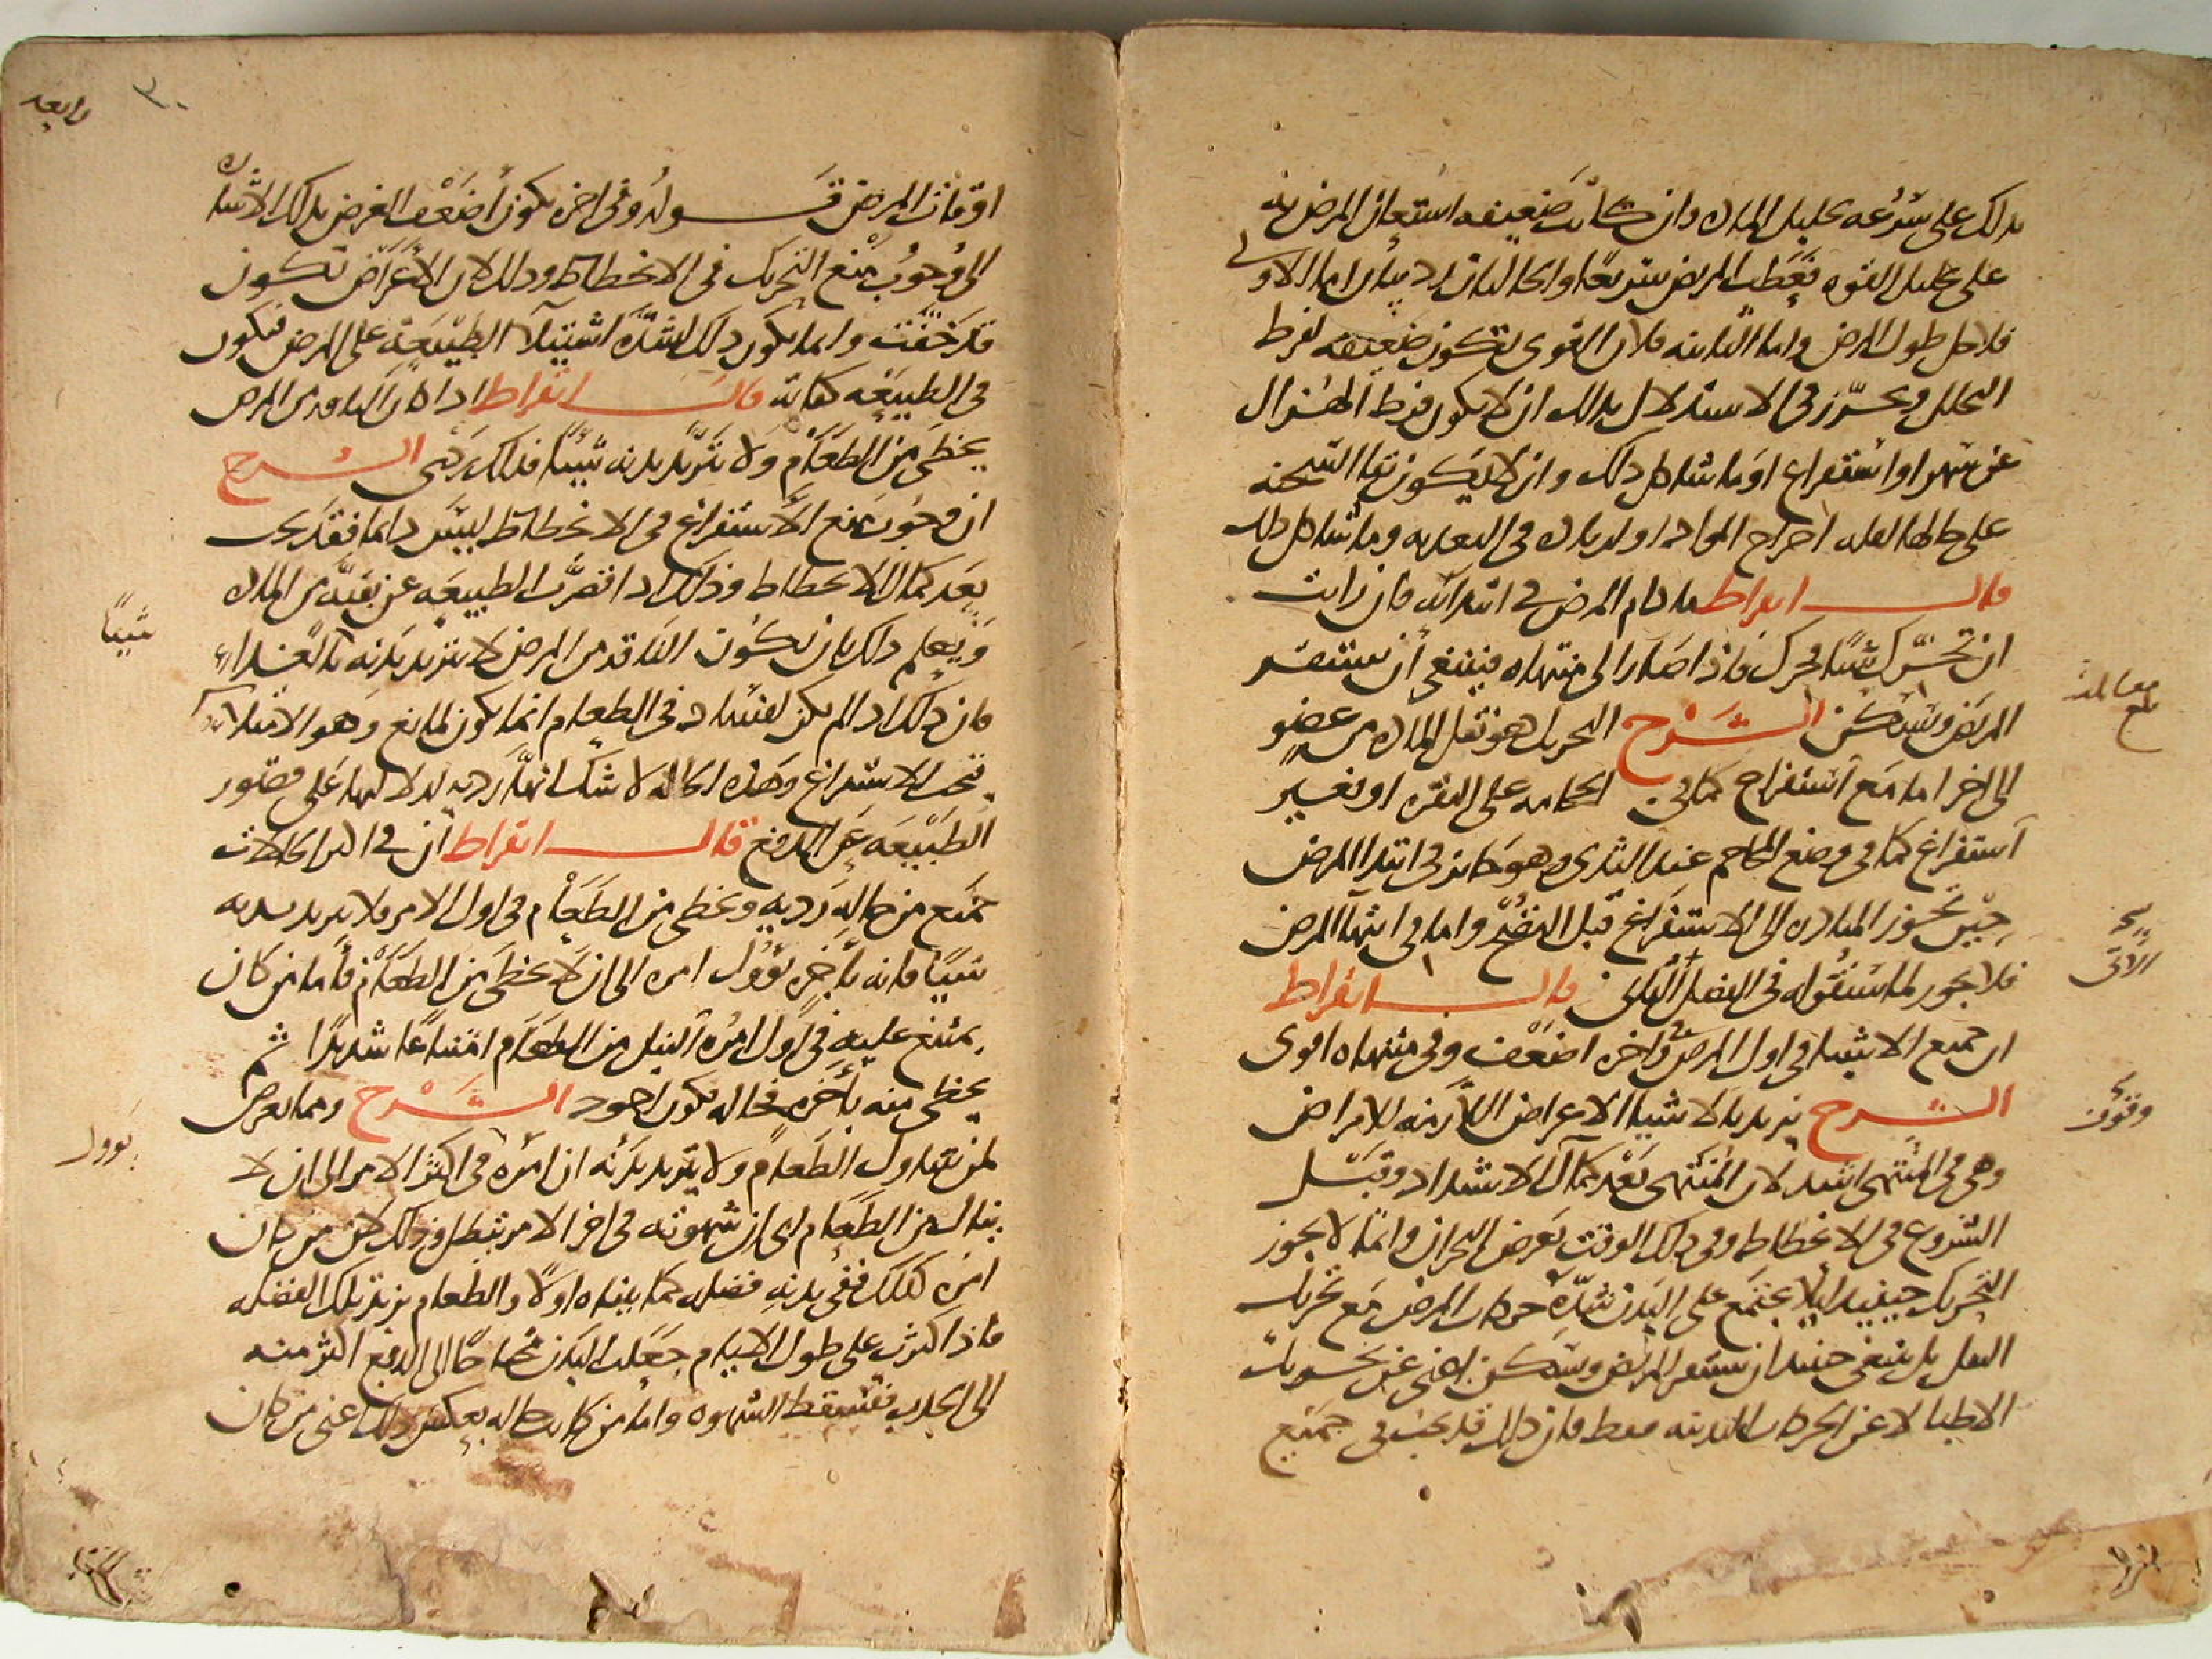 بذلك على سرعه تحليل الماده وان كانت ضعيفه استعان المرض به
على تحليل القوه فعطب المريض سريعا والحالتان رديتان اما الاولى
فلاجل طول المرض واما الثانيه فلان القوى تكون ضعيفه لفرط
التحلل ويحترز في الاستدلال بذلك ان لا يكون فرط الهزال
عن سهر او استفراغ او ما شاكل ذلك وان لا يكون بقا السحنه
على حالها لقله اخراج المواد او لزياده في التغديه وما شاكل ذلك
قال ابقراط ما دام المرض في ابتدائه فان رايت
ان تحرك شيا فحرك فاذا صار الى منتهاه فينبغي ان يستقر
المريض ويسكن الشرح التحريك هو نقل الماده من عضو
الى اخر اما مع استفراغ كما في الحجامه على النقره او بغير
استفراغ كما في وضع المحاجم عند الثدي وهو جايز في ابتدا المرض
حين تجوز المبادره الى الاستفراغ قبل النضج واما في انتها المرض
فلا يجوز لما سنقوله في الفصل الثاني قال ابقراط
ان جميع الاشيا في اول المرض وفي اخره اضعف وفي منتهاه اقوى
الشرح يريد بالاشيا الاعراض اللازمه للامراض
وهي في المنتهى اشد لان المنتهى بعد كمال الاشتداد وقبل
الشروع في الانحطاط وفي ذلك الوقت يعرض البحران وانما لا يجوز
التحريك حينيذ ليلا يجتمع على البدن شده حركات المرض مع تحريك
النقل بل ينبغي حينيذ ان يستقر المريض ويسكن اعني عن تحريك
الاطبا لا عن الحركات البدنيه فقط فان ذلك قد يجب في جميع
وقوف
رابعه
٣٠
اوقات المرض قوله وفي اخره يكون اضعف الغرض بذلك الاشاره
الى وجوب منع التحريك في الانحطاط وذلك لان الاعراض تكون
قد خفت وانما يكون ذلك لشده استيلا الطبيعه على المرض فيكون
في الطبيعه كفايه قال ابقراط اذا كان الناقه من المرض
يحظى من الطعام ولا يتزيد بدنه شيا فذلك ردي الشرح
ان وجوب منع الاستفراغ في الانحطاط ليس دايما فقد يجب
بعد كمال الانحطاط وذلك اذا قصرت الطبيعه عن بقيه من الماده
ويعلم ذلك بان تكون الناقه من المرض لا يتزيد بدنه بالغداء
فان ذلك اذا لم يكن لفساد في الطعام انما يكون لمانع وهو الامتلا
فيجب الاستفراغ وهذه الحاله لا شك انها رديه لدلالتها على قصور
الطبيعه عن الدفع قال ابقراط ان في اكثر الحالات
جميع من حاله رديه ويحظى من الطعام في اول الامر فلا يزيد بدنه
شيا فانه باخره يؤول امره الى ان لا يحظى من الطعام فاما من كان
يمتنع عليه في اول امره النيل من الطعام امتناعا شديدا ثم
يحظى منه باخره فحاله يكون اجود الشرح ومما يعرض
لمن يتناول الطعام ولا يتزيد بدنه ان امره في اكثر الامر الى ان لا
ينال من الطعام اي ان شهوته في اخر الامر تبطل وذلك لان من كان
امره كذلك ففي بدنه فضله كما بيناه اولا والطعام يزيد تلك الفضله
فاذا كثرت على طول الايام جعلت البدن محتاجا الى الدفع اكثر منه
الى الجذب فتسقط الشهوه واما من كانت حاله بعكس ذلك اعني من كان
شيا
يوول